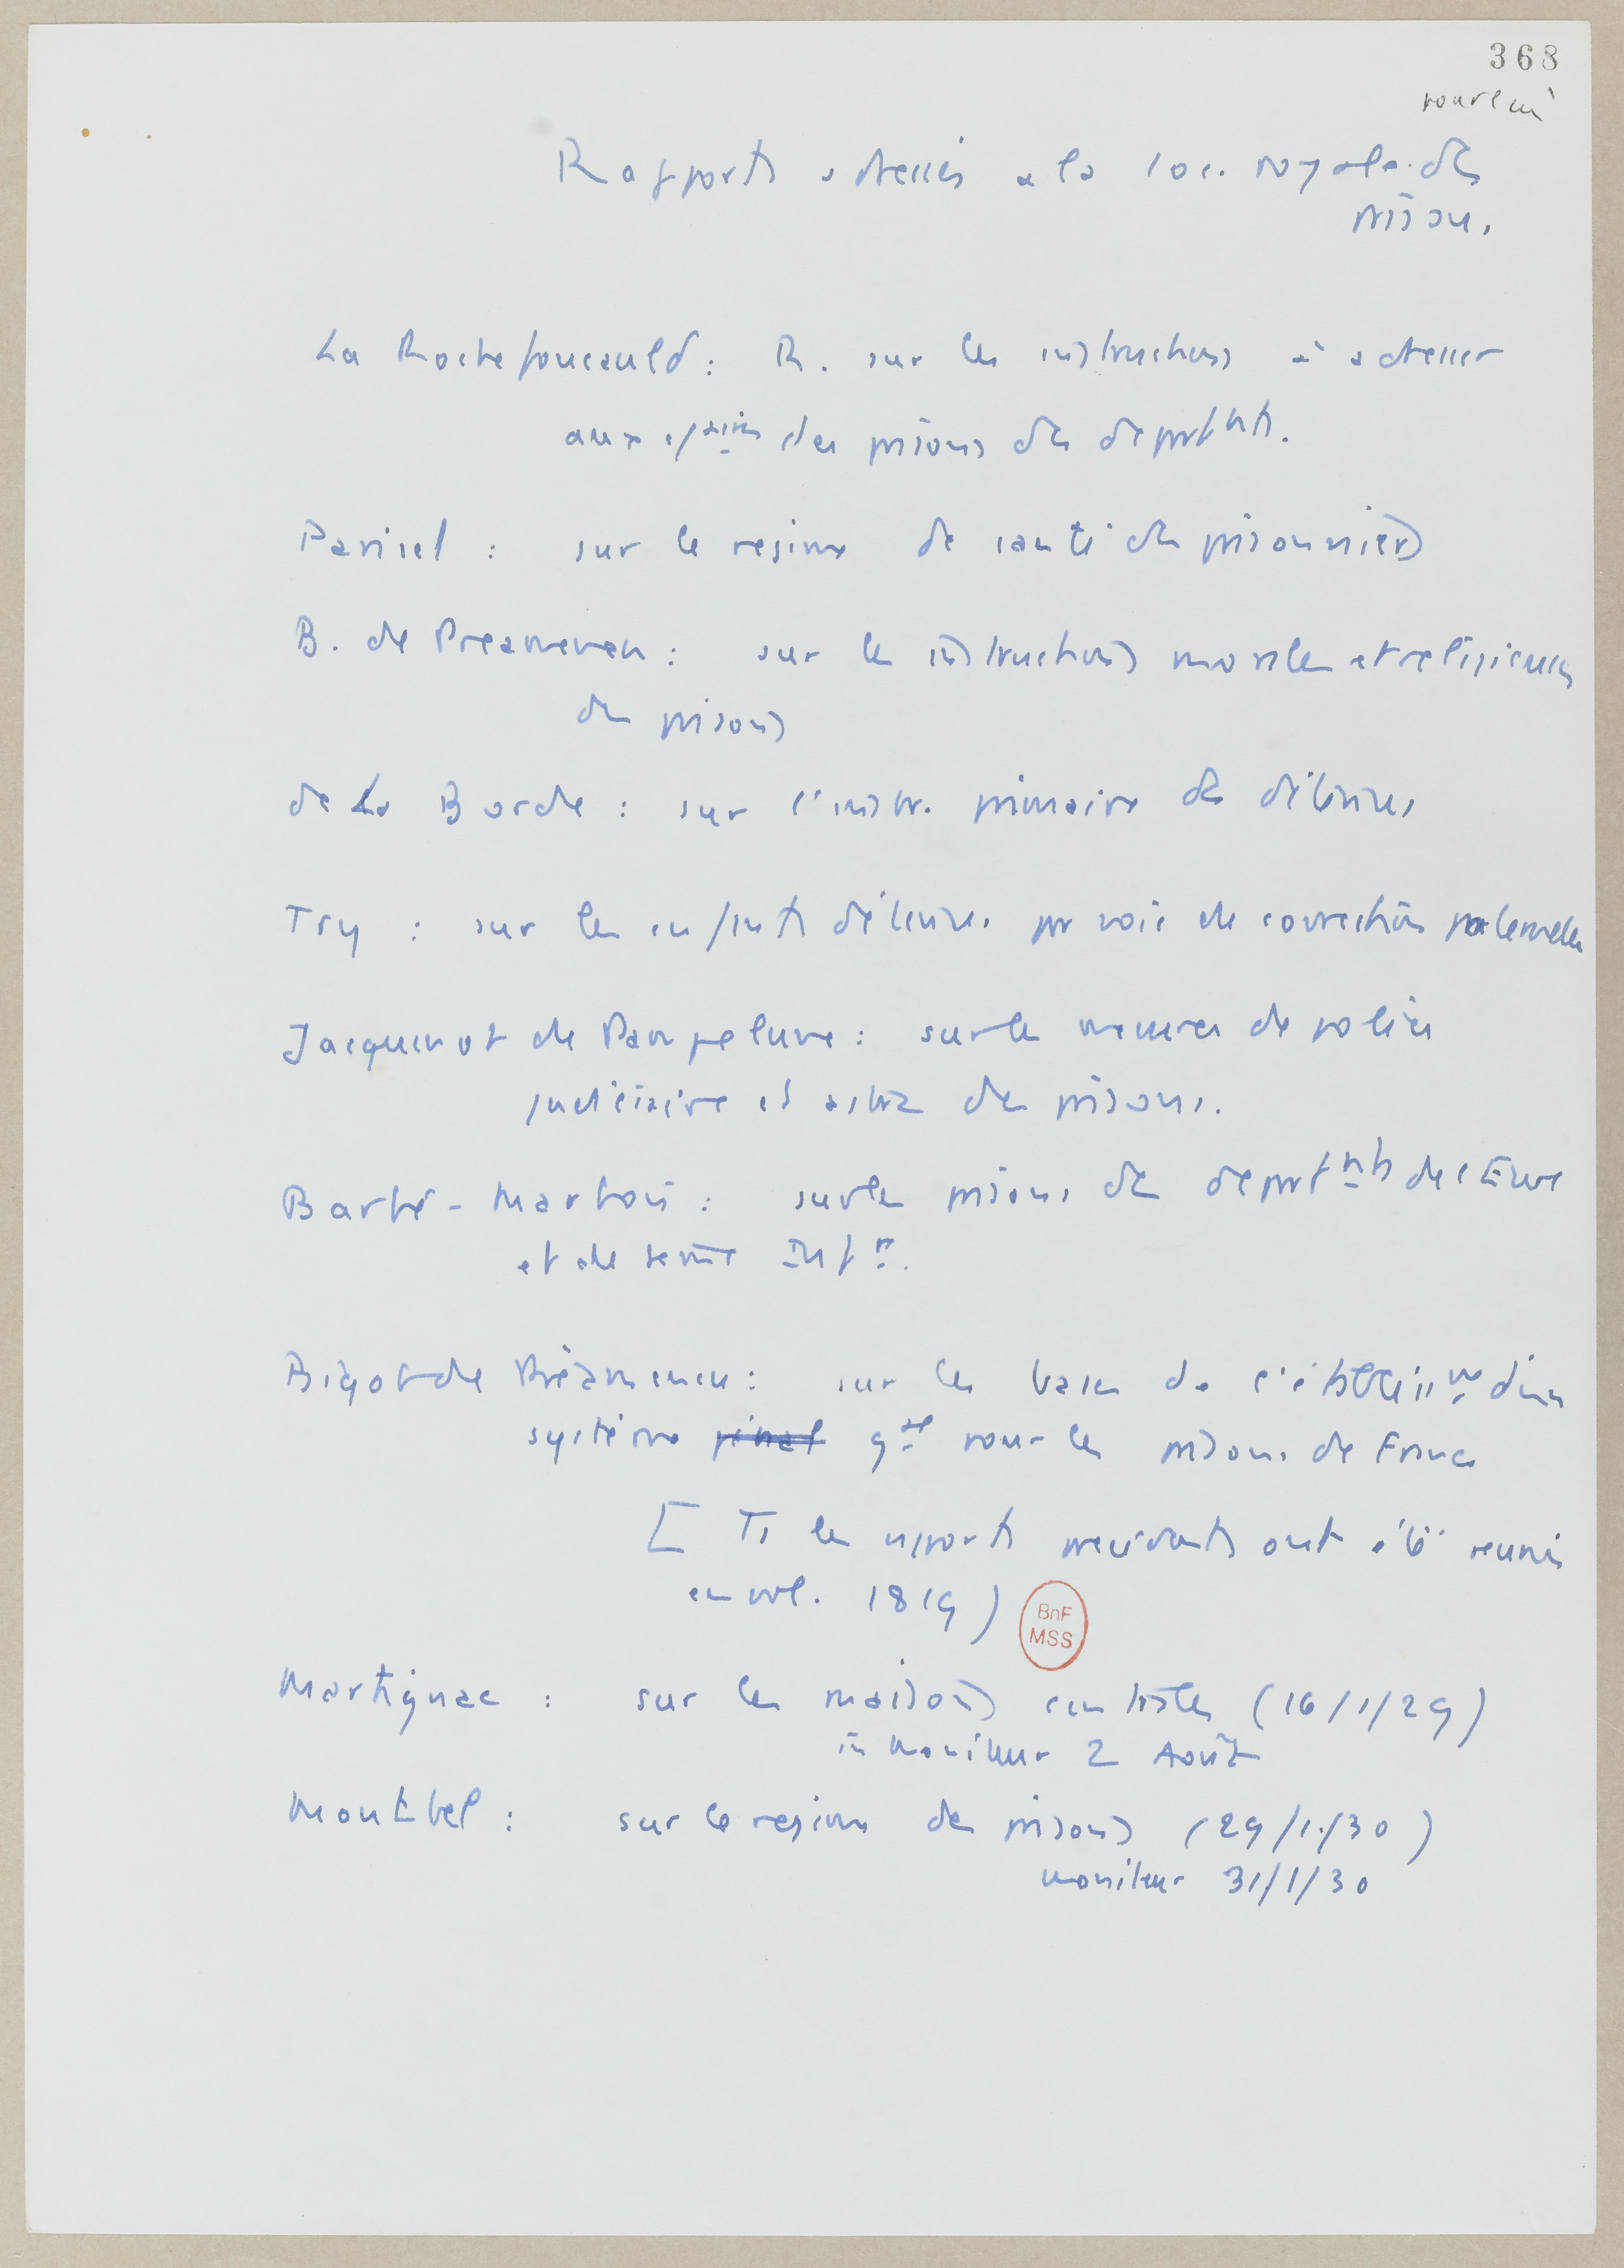 368
Rapports adressés a la soc. royale des
prisons.
La Rochefoucauld : R. sur les instructions à adresser
aux des prisons des deprtnts.
Pariset : sur le regime de santé des prisonniers
B. de Preameneu : sur les instructions morales et religieuses
des prisons
de La Borde : sur l'instr. primaire des détenus
Try : sur les enfants détenus par voie de correction paternelle
Jacquinot de Pampelune : sur les mesures de police
judiciaire et des prisons.
Barbé-Marbois : sur les prisons des deprtnts de l'Eure
et de Seine Infre.
Bigot de Préameneu : sur les bases de d'un
système pénal gal pour les prisons de France
[ Ts les rapports precedents ont été reunis
en vol. 1819)
BnF
MSS
Martignac : sur les maisons centrales (16/1/29)
in Moniteur 2 Août
Montbel : sur le regime des prisons (29/1/30)
Moniteur 31/1/30